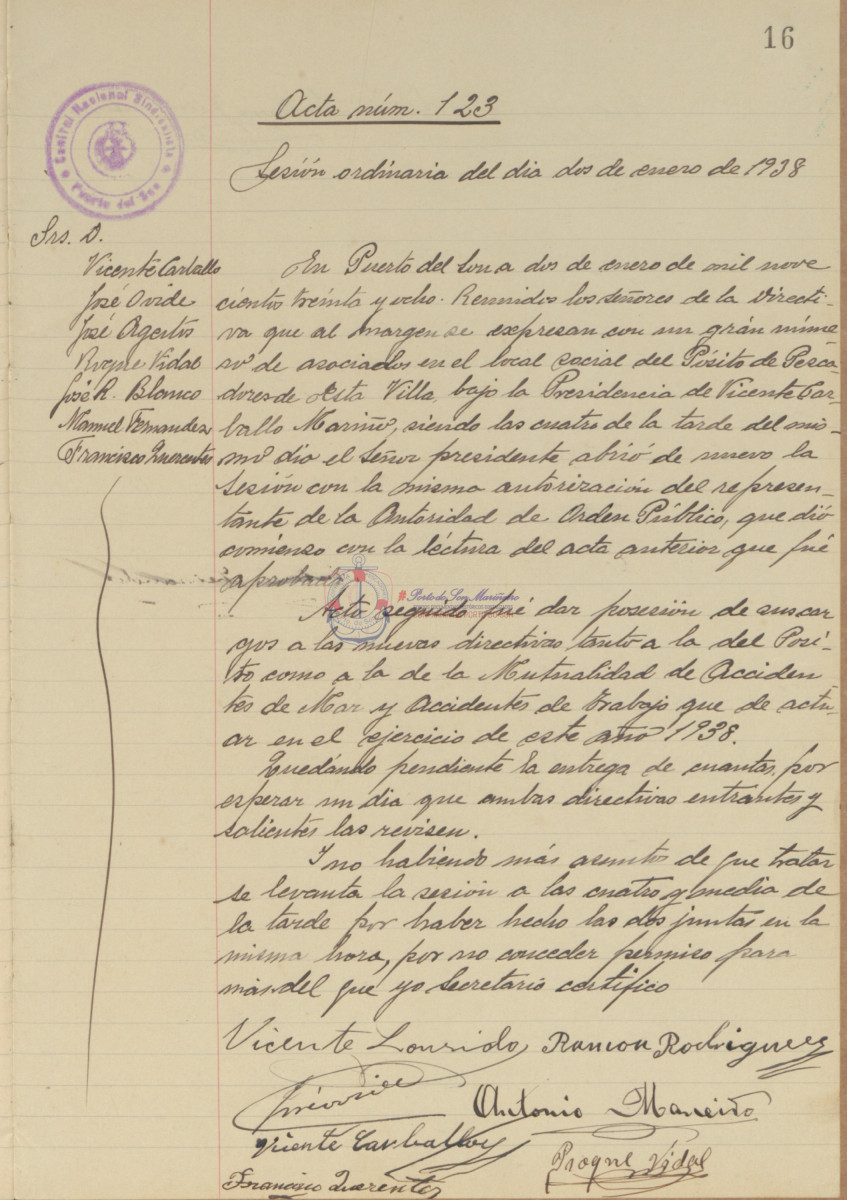 16
Acta núm. 123
Sesión ordinaria del dia dos de enero de 1938
Central Nacional Sindicalista
Puerto del Son
Srs. D.
Vicente Carballo
José Ovide
José Agestis
Roque Vidal
José R. Blanco
Manuel Fernandez
Francisco Querentes
En Puerto del Son a dos de enero de mil nove
cientos treinta y ocho. Reunidos los señores de la directi-
va que al margen se expresan con un grán núme
ro de asociados en el local social del Pósito de Pesca
dores de esta Villa, bajo la Presidencia de Vicente Car-
ballo Mariño, siendo las cuatro de la tarde del mis-
mo dia el Señor presidente abrió de nuevo la
Sesión con la misma autorización del represen-
tante de la Autoridad de Orden Público, que dió
comienso con la léctura del acta anterior que fué
aprobada
Porto do Son Mariñeiro
Acto seguido fué dar posesión de sus car
gos a las nuevas directivas, tanto a la del Posi-
to como a la de la Mutualidad de Acciden
tes de Mar y Accidentes de trabajo que de actu-
ar en el ejercicio de este año 1938.
Quedándo pendiente la entrega de cuantas, por
esperar un dia que ambas directivas entrantes y
salientes las revisen.
I no habiendo más asuntos de que tratar
se levanta la sesión a las cuatro y media de
la tarde por haber hecho las dos juntas en la
misma hora, por no conceder permiso para
más del que yo Secretario certifico
Vicente Lourido Ramon Rodriguez
Antonio Maneiro
Vicente Carballo
Roque Vidal
Francisco Querentes